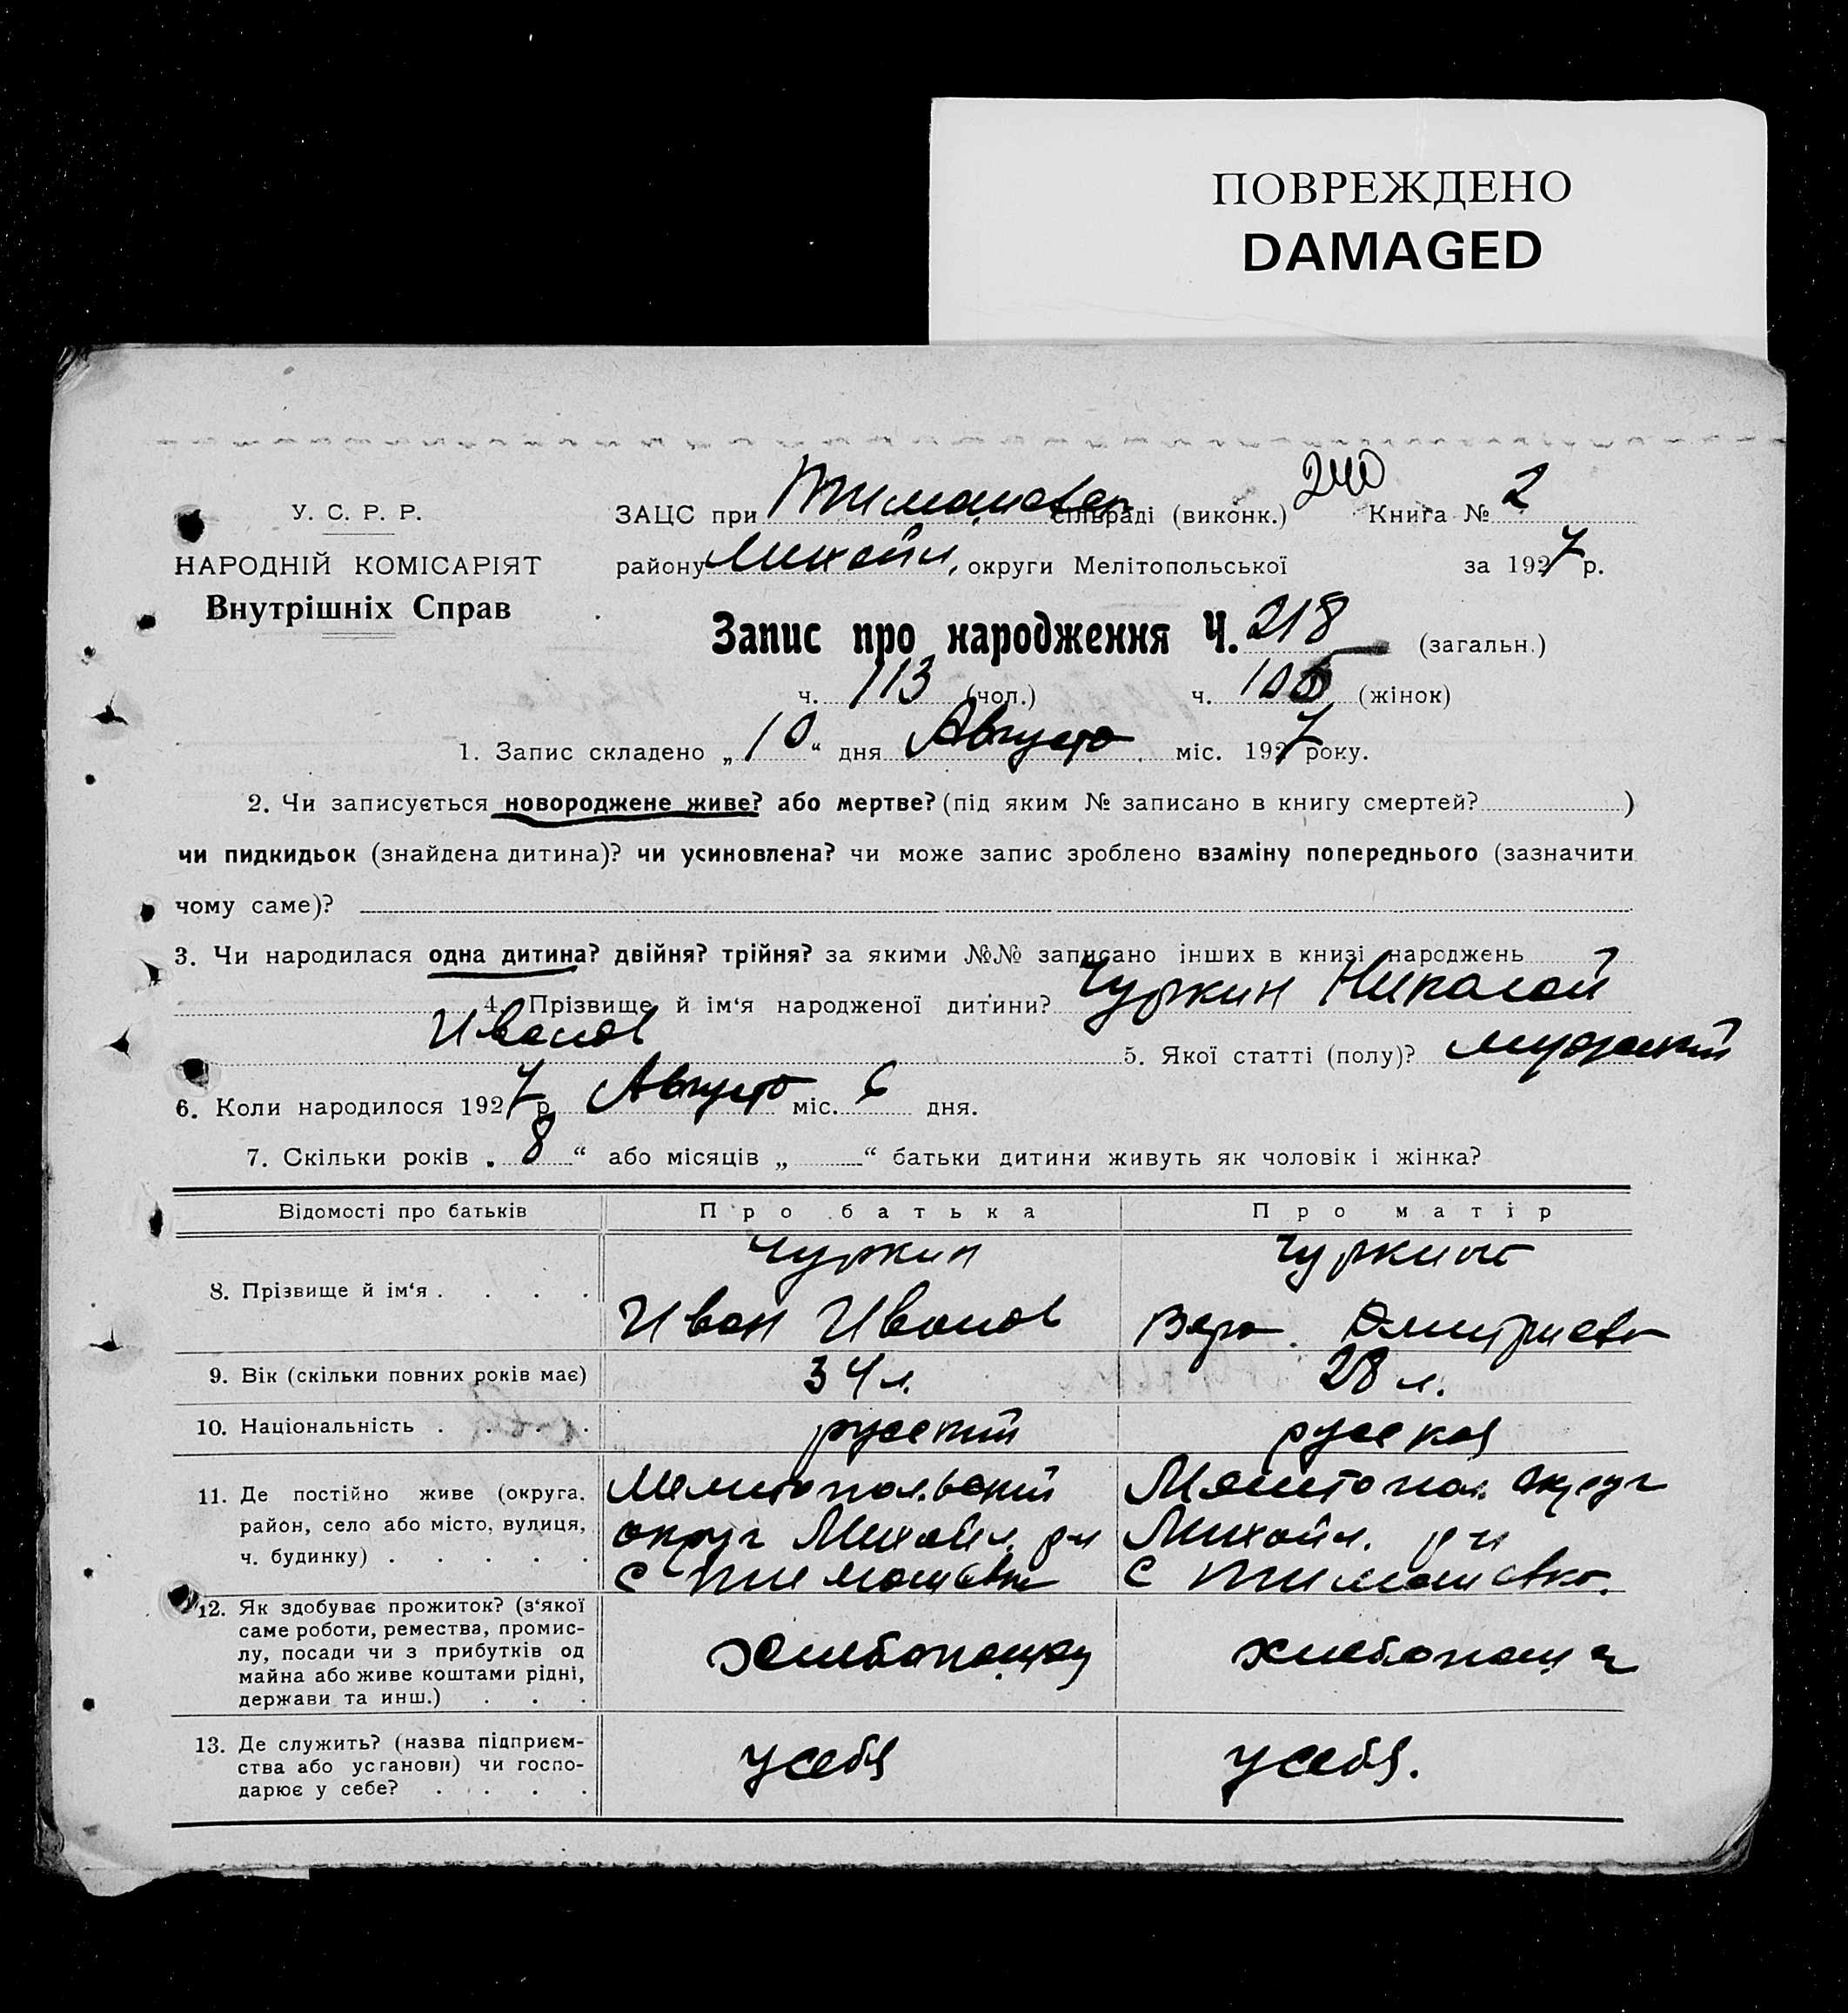 ПОВРЕЖДЕНО
DAMAGED
240
У. С. Р. Р.
НАРОДНІЙ КОМІСАРІЯТ
Внутрішніх Справ
ЗАЦС при Тимошев сільраді (виконк.) Книга № 2
району Михайл. округи Мелітопольської за 1927 р.
Запис про народження Ч. 218 (загальн.)
ч. 113 (чол.) ч. 105 (жінок)
1. Запис складено „10“ дня Августа міс. 1927 року.
2. Чи записується новороджене живе? або мертве? (під яким № записано в книгу смертей? )
чи пидкидьок (знайдена дитина)? чи усиновлена? чи може запис зроблено взаміну попереднього (зазначити
чому саме)?
3. Чи народилася одна дитина? двійня? трійня? за якими №№ записано інших в книзі народжень
4. Прізвище й ім‘я народженої дитини? Чуркин Николай
Иванов 5. Якої статті (полу)? мужский
6. Коли народилося 1927 р. Августа міс. 6 дня.
7. Скільки років „8“ або місяців „ “ батьки дитини живуть як чоловік і жінка?
Відомості про батьків Про батька Про матір
8. Прізвище й ім‘я . . . .
Чуркин
Иван Иванов
Чуркина
Вера Дмитриевн
9. Вік (скільки повних років має) 34 л. 28 л.
10. Національність . . . . русский русская
11. Де постійно живе (округа,
район, село або місто, вулиця,
ч. будинку) . . . . .
Мелитопольский
округ Михайл. р-н
с Тимошевка
Мелитопол. округ
Михайл. р-н
с Тимошевка.
12. Як здобуває прожиток? (з‘якої
саме роботи, ремества, промис-
лу, посади чи з прибутків од
майна або живе коштами рідні,
держави та инш.) . . .
13. Де служить? (назва підприєм-
ства або установи) чи госпо-
дарює у себе? . . . .
у себя
у себя.